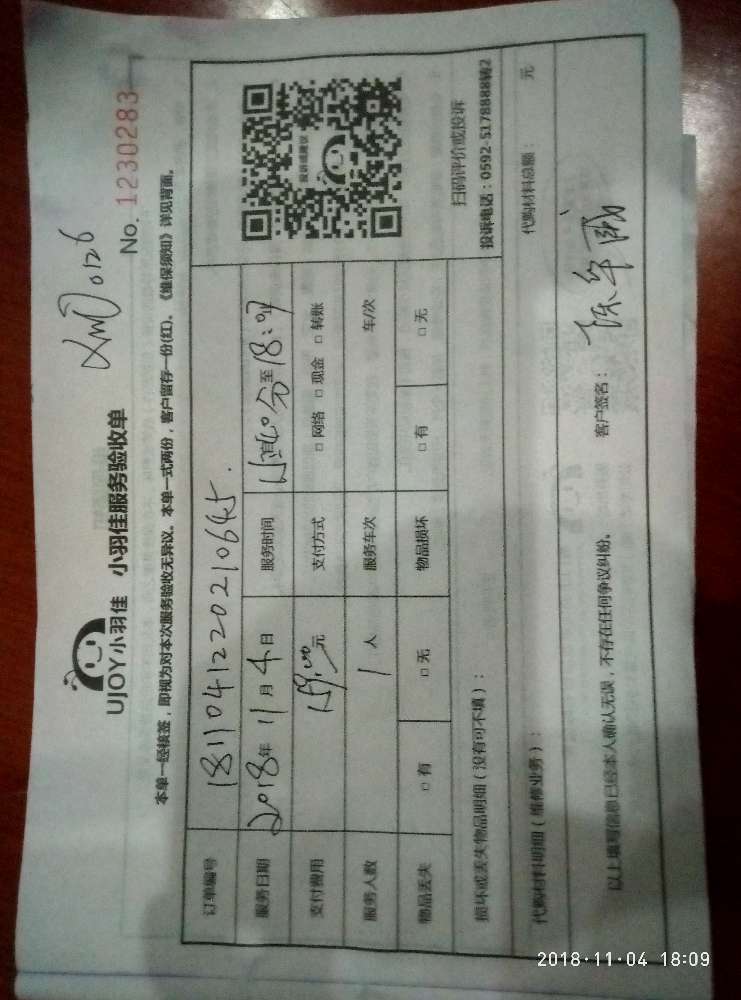 UJOY小羽佳 小羽佳服务验收单
XM 0126
No. 1230283
本单一经核签，即视为对本次服务验收无异议。本单一式两份，客户留存一份(红)、《维保须知》详见背面。
订单编号 1811041220210645
服务日期 2018年 11月 4日 服务时间 至
支付费用 元 支付方式 □ 网络 □ 现金 □ 转账
服务人数 1 人 服务车次 车/次
物品丢失 □ 有 □ 无 物品损坏 □ 有 □ 无
扫码评价或投诉
投诉电话：0592-5178888转2
损坏或丢失物品明细（没有可不填）：
代购材料明细（维修业务）： 代购材料总额： 元
以上填写信息已经本人确认无误，不存在任何争议纠纷。 客户签名：
2018·11·04 18:09